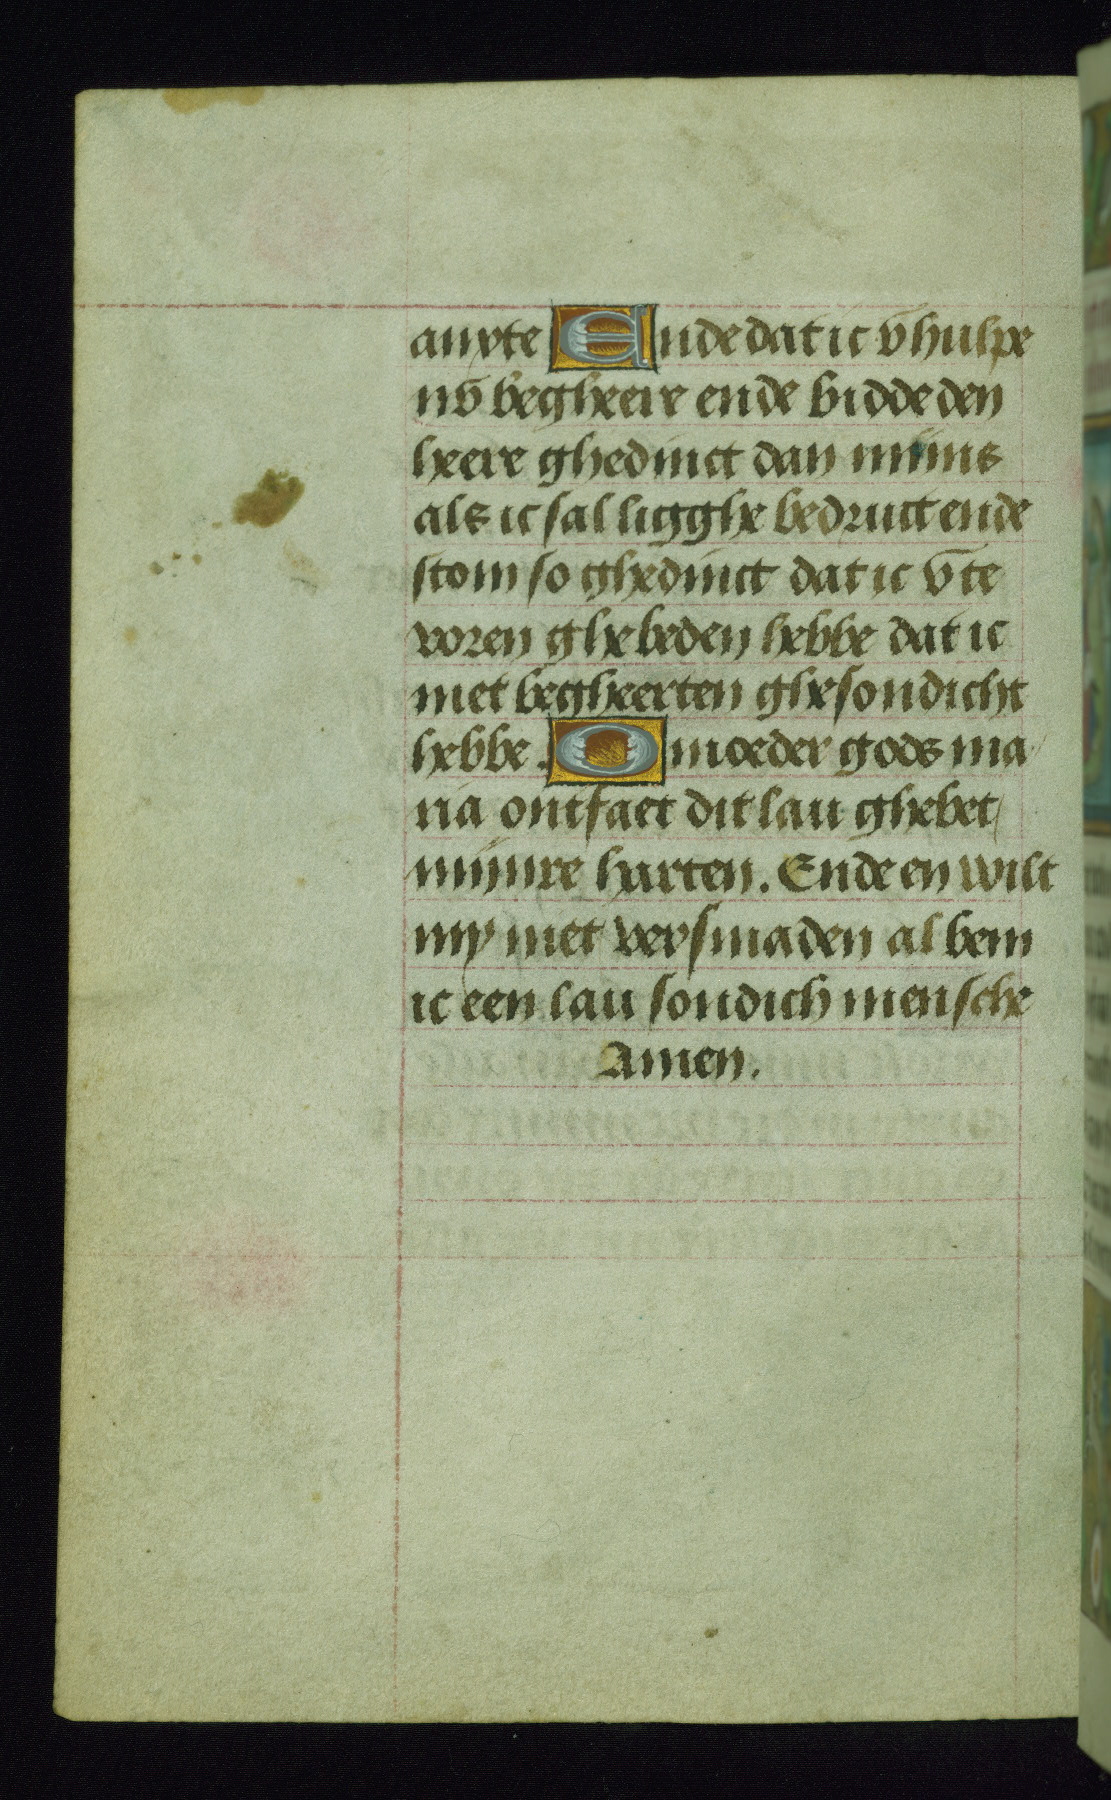 anxte Ende dat ic v̄ hulpe
nv̄ begheere ende bidde den
heere ghedinct dan mijns
als ic sal ligghe bedruct ende
stom so ghedinct dat ic v̄ te
voren ghebeden hebbe dat ic
met begheerten ghesondicht
hebbe. O moeder gods ma
ria ontfaet dit lau ghebet
mijnre harten. Ende en wilt
my niet versmaden al bem
ic een lau sondich mensche
Amen.